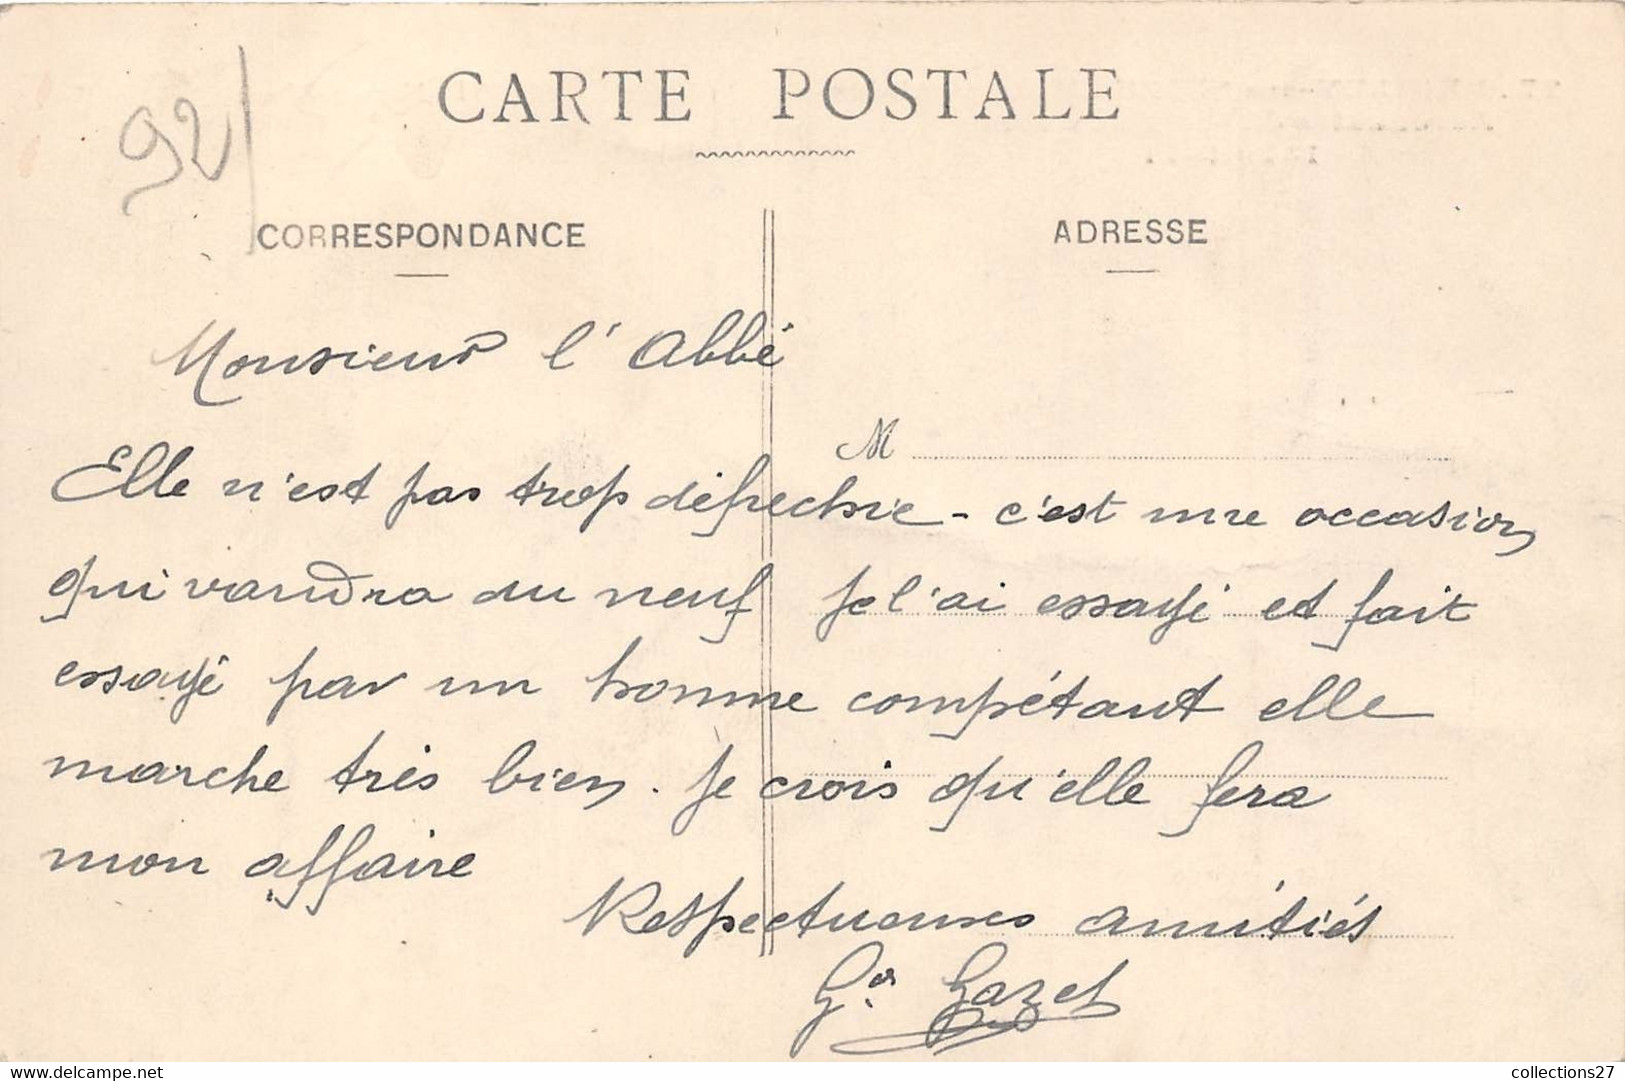 CARTE POSTALE
92
CORRESPONDANCE
ADRESSE
Monsieur l'Abbé
M
Elle n'est pas trop défrechie - c'est une occasion
qui vaudra du neuf je l'ai essayé et fait
essayé par un homme compétant elle
marche très bien. Je crois qu'elle fera
mon affaire
Respectueuses amitiés
Gazet
www.delcampe.net
collections27